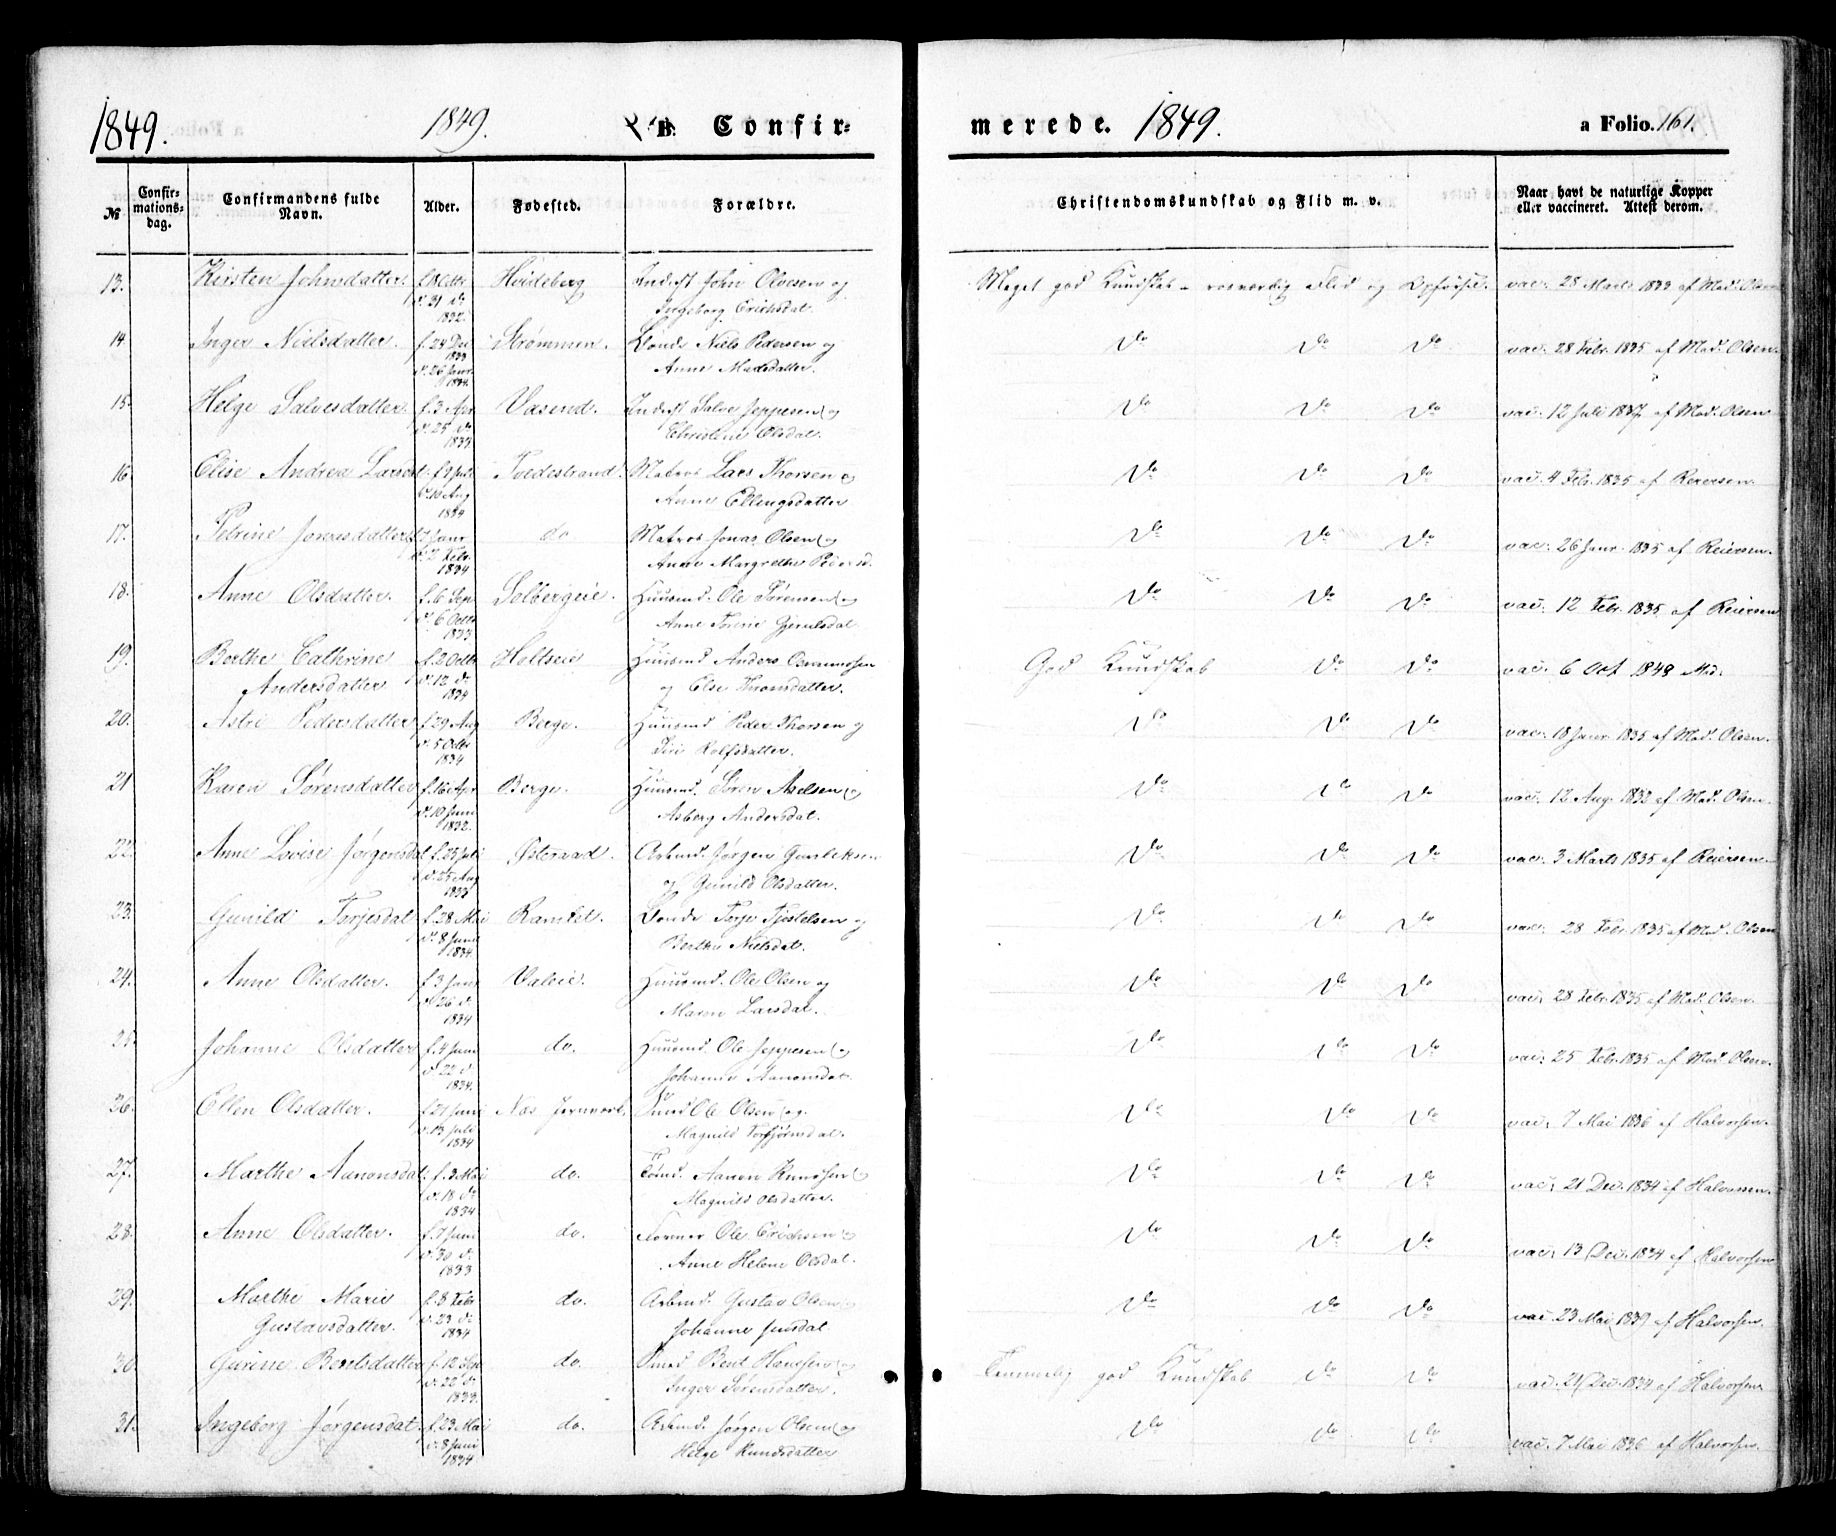 1849. 1849. B. Confir-
merede. 1849. a Folio. 161.
№ Confir-mations-dag. Confirmandens fulde Navn. Alder. Fødested. Forældre. Christendomskundskab og Flid m. v. Naar havt de naturlige Kopper eller vaccineret. Attest derom.
13. Kirsten Johnsdatter 1832. Inderst John Olvesen og Meget god Kundskab - rosværdig Flid og Opførsel. vac. 28 Marts 1833 af Mad. Olsen
Ingeborg Erichsdat.
14. Inger Nielsdatter. f. 24 Dec 1833 d. 26 Janr. 1834. Strømmen. Bonde Niels Pedersen og Do Do Do vac. 28 Febr. 1835 af Mad. Olsen.
Anne Madsdatter.
15. Helge Salvesdatter f. 3 Apr d. 25 do Vasend. Inderst Salve Jeppesen og Do Do Do vac. 12 Juli 1837 af Mad. Olsen
Christine Olsdat.
16. Elise Andrea Larsd. 1834 Tvedestrand. Matros Lars Thorsen og Do Do Do vac. 4 Febr. 1835 af Reiersen.
Anne Ellingsdatter
17. Petrine Jonasdatter Janr d. 2 Febr. 1834 do Matros Jonas Olsen og Do Do Do vac. 26 Janr. 1835 af Reiersen.
Anne Margrethe Pedersd.
18. Anne Olsdatter. f. 6 Sep d. 6 Octb 1833 Solbergeie. Huusmd. Ole Sørensen og Do Do Do vac. 12 Febr. 1835 af Reiersen
Anne Torine Gjerulsdat.
19. Berthe Cathrine f. 2 Octb Holtseie Huusmd Anders Osmundsen God Kundskab Do Do vac. 6 Oct 1848
Andersdatter d. 12 do 1834 og Else Thronsdatter.
20. Astri Pedersdatter f. 29 Aug d. 5 Octb 1834 Berge. Huusmd Peder Thorsen og Do Do Do vac. 18 Janr. 1835 af Mad. Olsen.
Siri Rolfsdatter.
21 Karen Sørensdatter f. 16 Apr d. 10 Juni 1832. Berge. Huusmd. Søren Axelsen og Do Do Do vac. 12 Aug. 1832 af Mad. Olsen.
Asberg Andersdat.
22. Anne Lovise Jørgensdat f. 25 Juli d. 25 Aug 1833 Østeraad. Arbmd. Jørgen Gunleksen Do Do Do vac. 3 Marts 1835 af Reiersen.
og Gunild Olsdatter.
23. Gunild Torjesdat f. 28 Mai d. 8 Juni 1834. Ramlet. Bonde Torje Tjostelsen og Do Do Do vac. 28 Febr. 1835 af Mad. Olsen
Berthe Nielsdat.
24. Anne Olsdatter. f. 3 Janr d. 26 do 1834 Valeie. Huusmd. Ole Olsen og Do Do Do vac. 28 Febr. 1835 af Mad. Olsen.
Maren Larsdat.
25. Johanne Olsdatter f. 4 Juni d. 22 do 1834. do. Huusmd. Ole Jeppesen og Do Do Do vac. 25 Febr. 1835 af Mad. Olsen.
Johanne Aanonsdat.
26. Ellen Olsdatter. f. 21 Juni d. 13 Juli 1834 Næs Jernverk. Smed Ole Olsen og Do Do Do vac. 7 Mai 1836 af Halvorsen.
Magnild Torbjørnsdat.
27. Marthe Aanonsdat. f. 3 Mai d. 18 do 1834 do. Tømd. Aanon Knudsen og Do Do Do vac. 21 Dec. 1834 af Halvorsen.
Magnild Olsdatter.
28. Anne Olsdatter. f. 7 Juni d. 30 do. 1833 do. Former Ole Erichsen og Do Do Do vac. 13 Dec. 1834 af Halvorsen
Anne Helene Olsdat.
29. Marthe Marie f. 8 Febr do. Arbmd. Gustav Olsen og Do Do Do vac. 23 Mai 1839 af Halvorsen.
Gustavsdatter. d. 23 do 1834 Johanne Jensdat
30 Gurine Bentsdatter f. 12 Sep d. 20 do 1833. do. Smed Bent Hansen og Temmelig god Kundskab Do Do vac. 21 Dec. 1834 af Halvorsen
Inger Sørensdatter.
31. Ingeborg Jørgensdat. f. 23 Mai d. 8 Juni 1834 do. Arbmd. Jørgen Olsen og Do Do Do vac. 7 Mai 1836 af Halvorsen.
Helge Knudsdatter